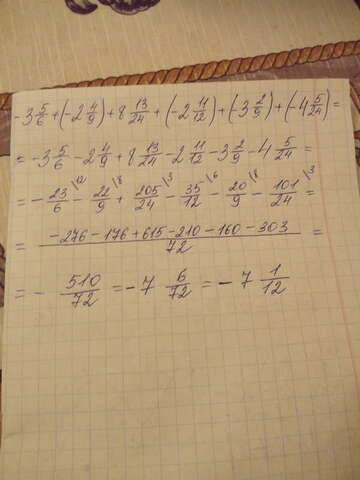 -3 5/6 + (-2 4/9) + 8 13/24 + (-2 11/12) + (-3 2/9) + (-4 5/24) =
= -3 5/6 - 2 4/9 + 8 13/24 - 2 11/12 - 3 2/9 - 4 5/24 =
= - 23/6 \12 - 22/9 \8 + 205/24 \3 - 35/12 \6 - 20/9 \8 - 101/24 \3 =
= (-276 - 176 + 615 - 210 - 160 - 303)/72 =
= - 510/72 = -7 6/72 = -7 1/12